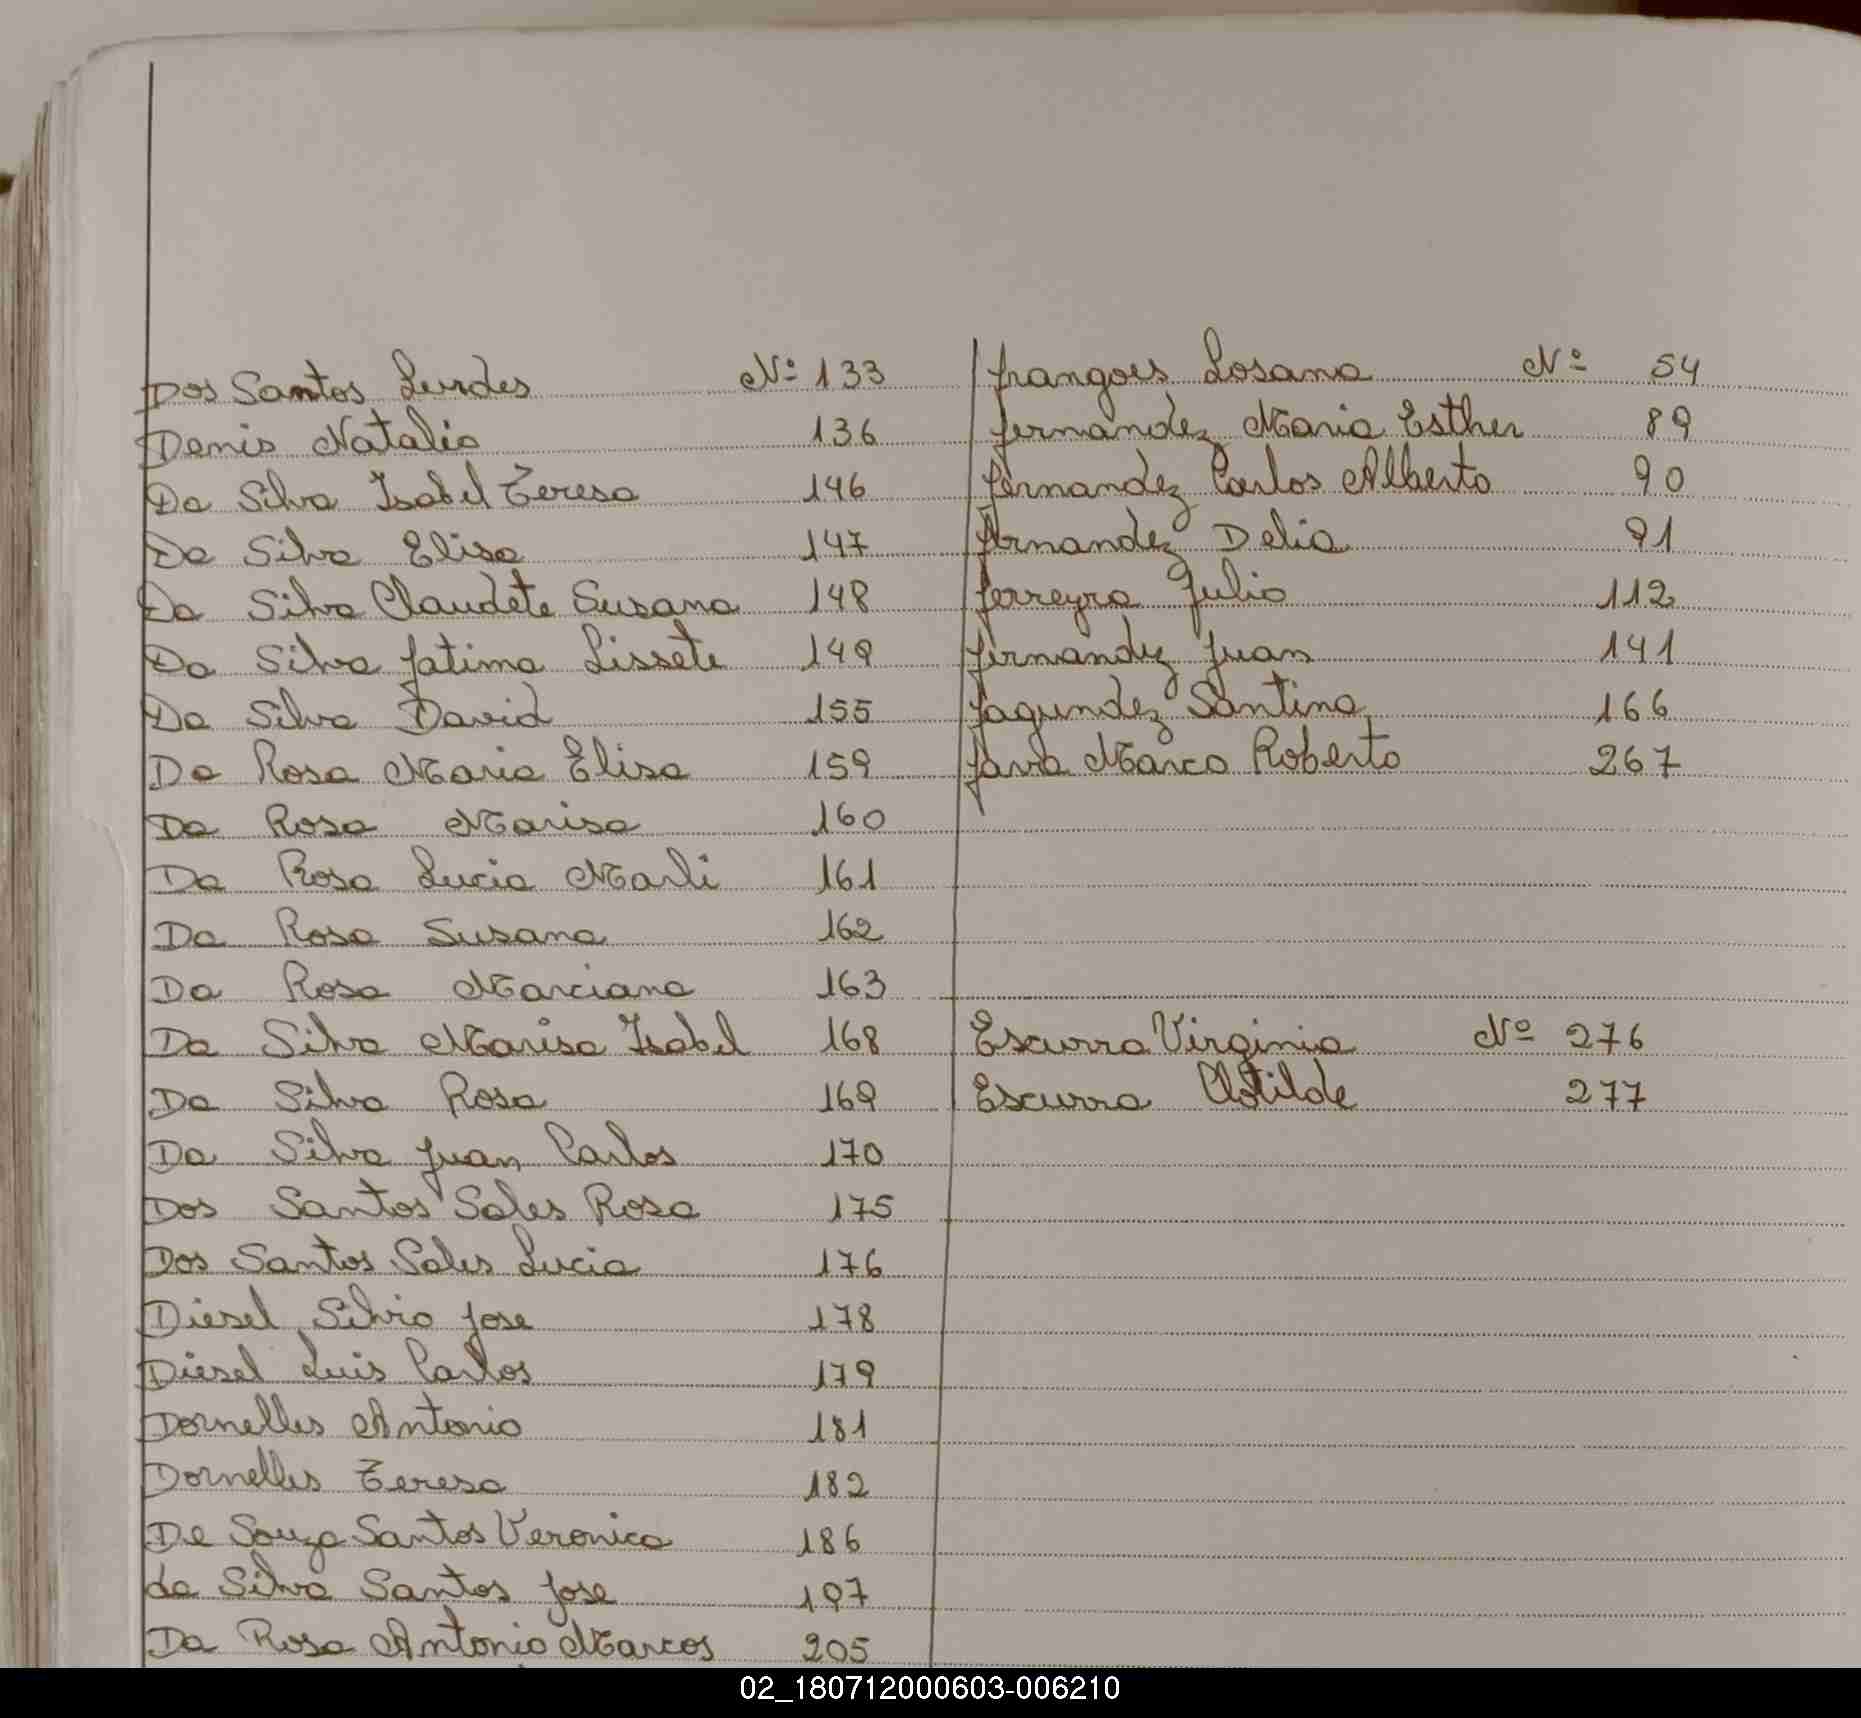 Dos Santos Lurdes Nº 133
Denis Natalia 136
Da Silva Isabel Teresa 146
Da Silva Elisa 147
Da Silva Claudete Susana 148
Da Silva Fatima Lissete 149
Da Silva David 155
Da Rosa Maria Elisa 159
Da Rosa Marisa 160
Da Rosa Lucia Marli 161
Da Rosa Susana 162
Da Rosa Marciana 163
Da Silva Marisa Isabel 168
Da Silva Rosa 169
Da Silva Juan Carlos 170
Dos Santos Sales Rosa 175
Dos Santos Sales Lucia 176
Diesel Silvio Jose 178
Diesel Luis Carlos 179
Dornelles Antonio 181
Dornelles Teresa 182
De Souza Santos Veronica 186
da Silva Santos Jose 197
Da Rosa Antonio Marcos 205
Frangois Losana Nº 54
Fernandez Maria Esther 89
Fernandez Carlos Alberto 90
Fernandez Delia 91
Ferreyra Julio 112
Fernandez Juan 141
Fagundez Santina 166
Favia Marco Roberto 267
Escurra Virginia Nº 276
Escurra Clotilde 277
02_180712000603-006210